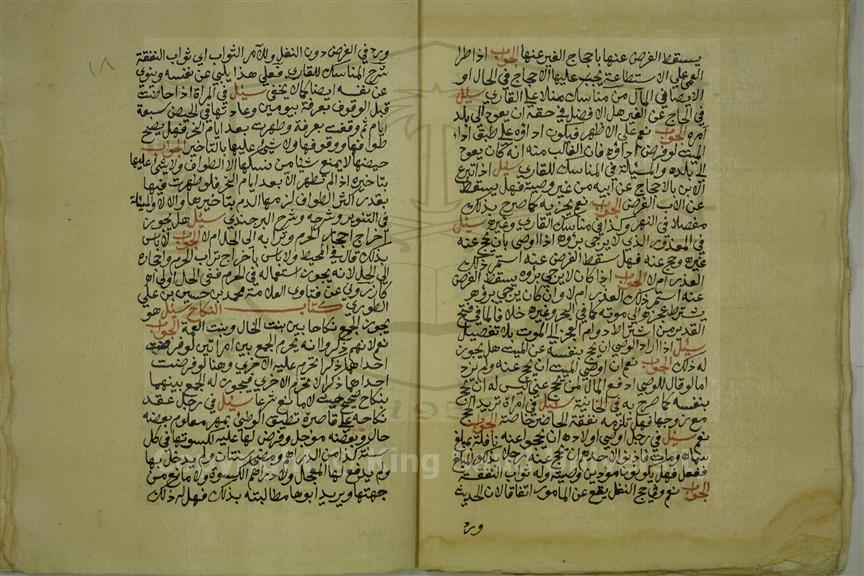 يسقط الفرض عنها باحجاج الغير عنها الجواب اذا طرا
العمى على الاستطاعة يجب عليها الاحجاج في الحال او
الايصا في المآل من مناسك منلا على القاري سئل
في الحاج عن الغير هل الافضل في حقه ان يعود الى بلد
آمره الجواب نعم على الاظهر فيكون اداؤه على طبق اداء
الميت لو فرض اداؤه فان الغالب منه انه كان يعود
الى بلده والمسئلة في المناسك للقاري سئل اذا تبرع
الابن بالاحجاج عن ابيه من غير وصية فهل يسقط
عن الاب الفرض الجواب نعم يجزيه كما صرح بذلك
مفصلا في النهر وكذا في مناسك القاري وغيره سئل
في المعذور الذي لا يرجى برؤه اذا اوصى بان يحج عنه
غيره وحج عنه فهل سقط الفرض عنه استمر ذلك
العذر ام لا الجواب اذا كان لا يرجى برؤه يسقط الفرض
عنه استمر ذلك العذر ام لا وان كان يرجى برؤه
يشترط عجزه الى موته كما في البحر وغيره خلافا لما في فتح
القدير من اشتراط دوام العجز الى الموت بلا تفصيل
سئل اذا اراد الوصي ان يحج بنفسه عن الميت هل يجوز
له ذلك الجواب نعم ان اوصى الميت ان يحج عنه ولم يزد
اما لو قال للوصي ادفع المال لمن يحج عني ليس له ان يحج
بنفسه كما صرح به في الخانية سئل في امراة تريد ان تحج
مع زوجها فهل تلزمه نفقة الحاضر خاصة الجواب
نعم سئل في رجل اوصى اولاده ان يحجوا عنه نافلة بمبلغ
سماه ومات فاذنوا لاحدهم ان يحج عنه رجلا بذلك المبلغ
ففعل فهل يكونون مؤدين وصيته وله ثواب النفقة
الجواب نعم وفي حج النفل يقع عن المامور اتفاقا لان الحديث
ورد
١٨
ورد في الفرض دون النفل وللآمر الثواب اي ثواب النفقة
شرح المناسك للقاري فعلى هذا يلبي عن نفسه وينوي
عن نفسه ايضا كما لا يخفى سئل في المراة اذا حاضت
قبل الوقوف بعرفة بيومين وعادتها في الحيض سبعة
ايام ثم وقفت بعرفة وطهرت بعد ايام النحر فهل يصح
طوافها ووقوفها ولا شي عليها بالتاخير الجواب
حيضها لا يمنع شيئا من نسكها الا الطواف ولا شي عليها
بتاخيره اذا لم تطهر الا بعد ايام النحر فلو طهرت فيها
بقدر اكثر الطواف لزمها الدم بتاخيرها والا لا والمسئلة
في التنوير وشرحه وشرح البرجندي سئل هل يجوز
اخراج احجار الحرم وترابه الى الحل ام لا الجواب لا باس
بذلك قال في المحيط ولا باس باخراج تراب الحرم واحجاره
الى الحل لانه يجوز استعماله في الحرم ففي الحل اولى اهـ
كازروني عن فتاوى العلامة محمد بن حسين بن علي
الطوري كتاب النكاح سئل هو
يجوز الجمع نكاحا بين بنت الخال وبنت العمة الجواب
نعم لانهم ذكروا انه يحرم الجمع بين امراتين لو فرضت
احداهما ذكرا تحرم عليه الاخرى وهنا لو فرضت
احداهما ذكرا لا تحرم الاخرى فيجوز له الجمع بينهما
بنكاح صحيح حيث لا مانع شرعا سئل في رجل عقد
نكاحه على قاصرة تطيق الوطئ بمهر معلوم بعضه
حال وبعضه مؤجل وفرض لها عليه لكسوتها في كل
سنة كذا من الدراهم ومضى سنتان ولم يدخل بها
ولم يدفع لها المعجل ولا دراهم الكسوة ولا مانع من
جهتها ويريد ابوها مطالبته بذلك فهل له ذلك